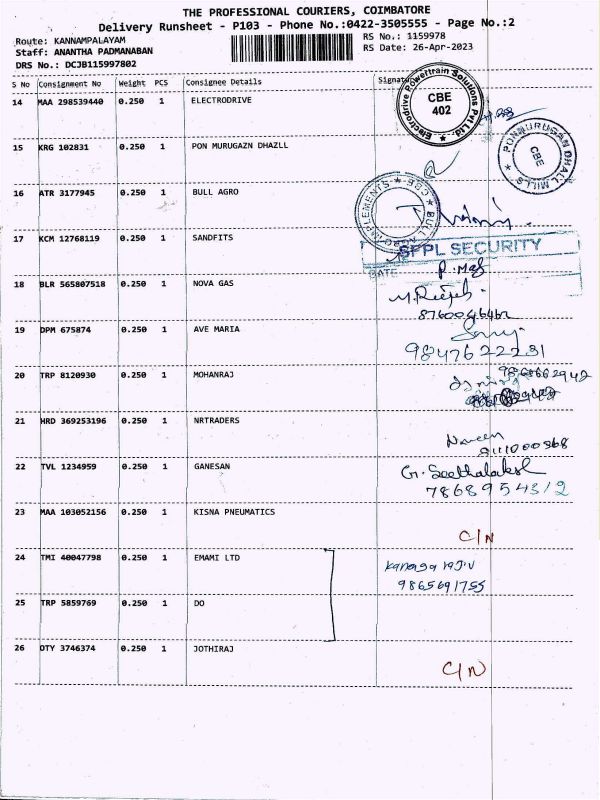 THE PROFESSIONAL COURIERS, COIMBATORE
Delivery Runsheet - P103 - Phone No.:0422-3505555 - Page No.:2
Route: KANNAMPALAYAM RS No.: 1159978
Staff: ANANTHA PADMANABAN RS Date: 26-Apr-2023
DRS No.: DCJB115997802
S No Consignment No Weight PCS Consignee Details Signature
14 MAA 298539440 0.250 1 ELECTRODRIVE
Electrodrive Powertrain Solutions Pvt Ltd.
CBE
402
15 KRG 102831 0.250 1 PON MURUGAZN DHAZLL
PONMURUGAN DHALL MILLS
CBE
16 ATR 3177945 0.250 1 BULL AGRO
BULL AGRO IMPLEMENTS CBE
17 KCM 12768119 0.250 1 SANDFITS
SFPL SECURITY
DATE
18 BLR 565807518 0.250 1 NOVA GAS
19 DPM 675874 0.250 1 AVE MARIA
9847622231
20 TRP 8120930 0.250 1 MOHANRAJ
21 HRD 369253196 0.250 1 NRTRADERS
Naveen
22 TVL 1234959 0.250 1 GANESAN
G. Seethalaksh
7868954312
23 MAA 103052156 0.250 1 KISNA PNEUMATICS
C/N
24 TMI 40047798 0.250 1 EMAMI LTD
9865691755
25 TRP 5859769 0.250 1 DO
26 OTY 3746374 0.250 1 JOTHIRAJ
C/N